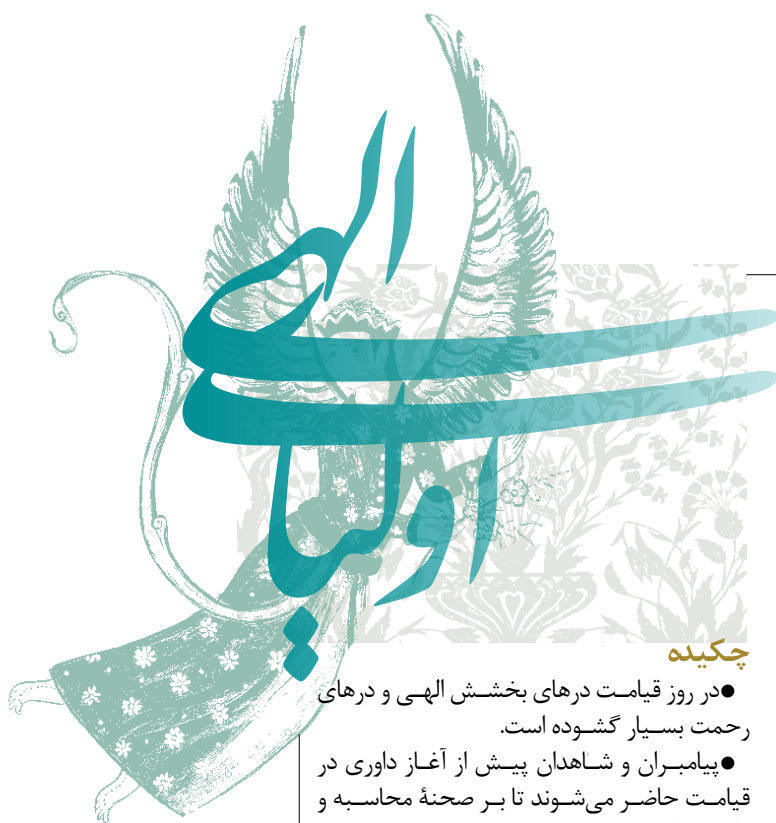 اولیای
الهی
چکیده
●در روز قیامت درهای بخشش الهی و درهای
رحمت بسیار گشوده است.
●پیامبران و شاهدان پیش از آغاز داوری در
قیامت حاضر می‌شوند تا بر صحنهٔ محاسبه و